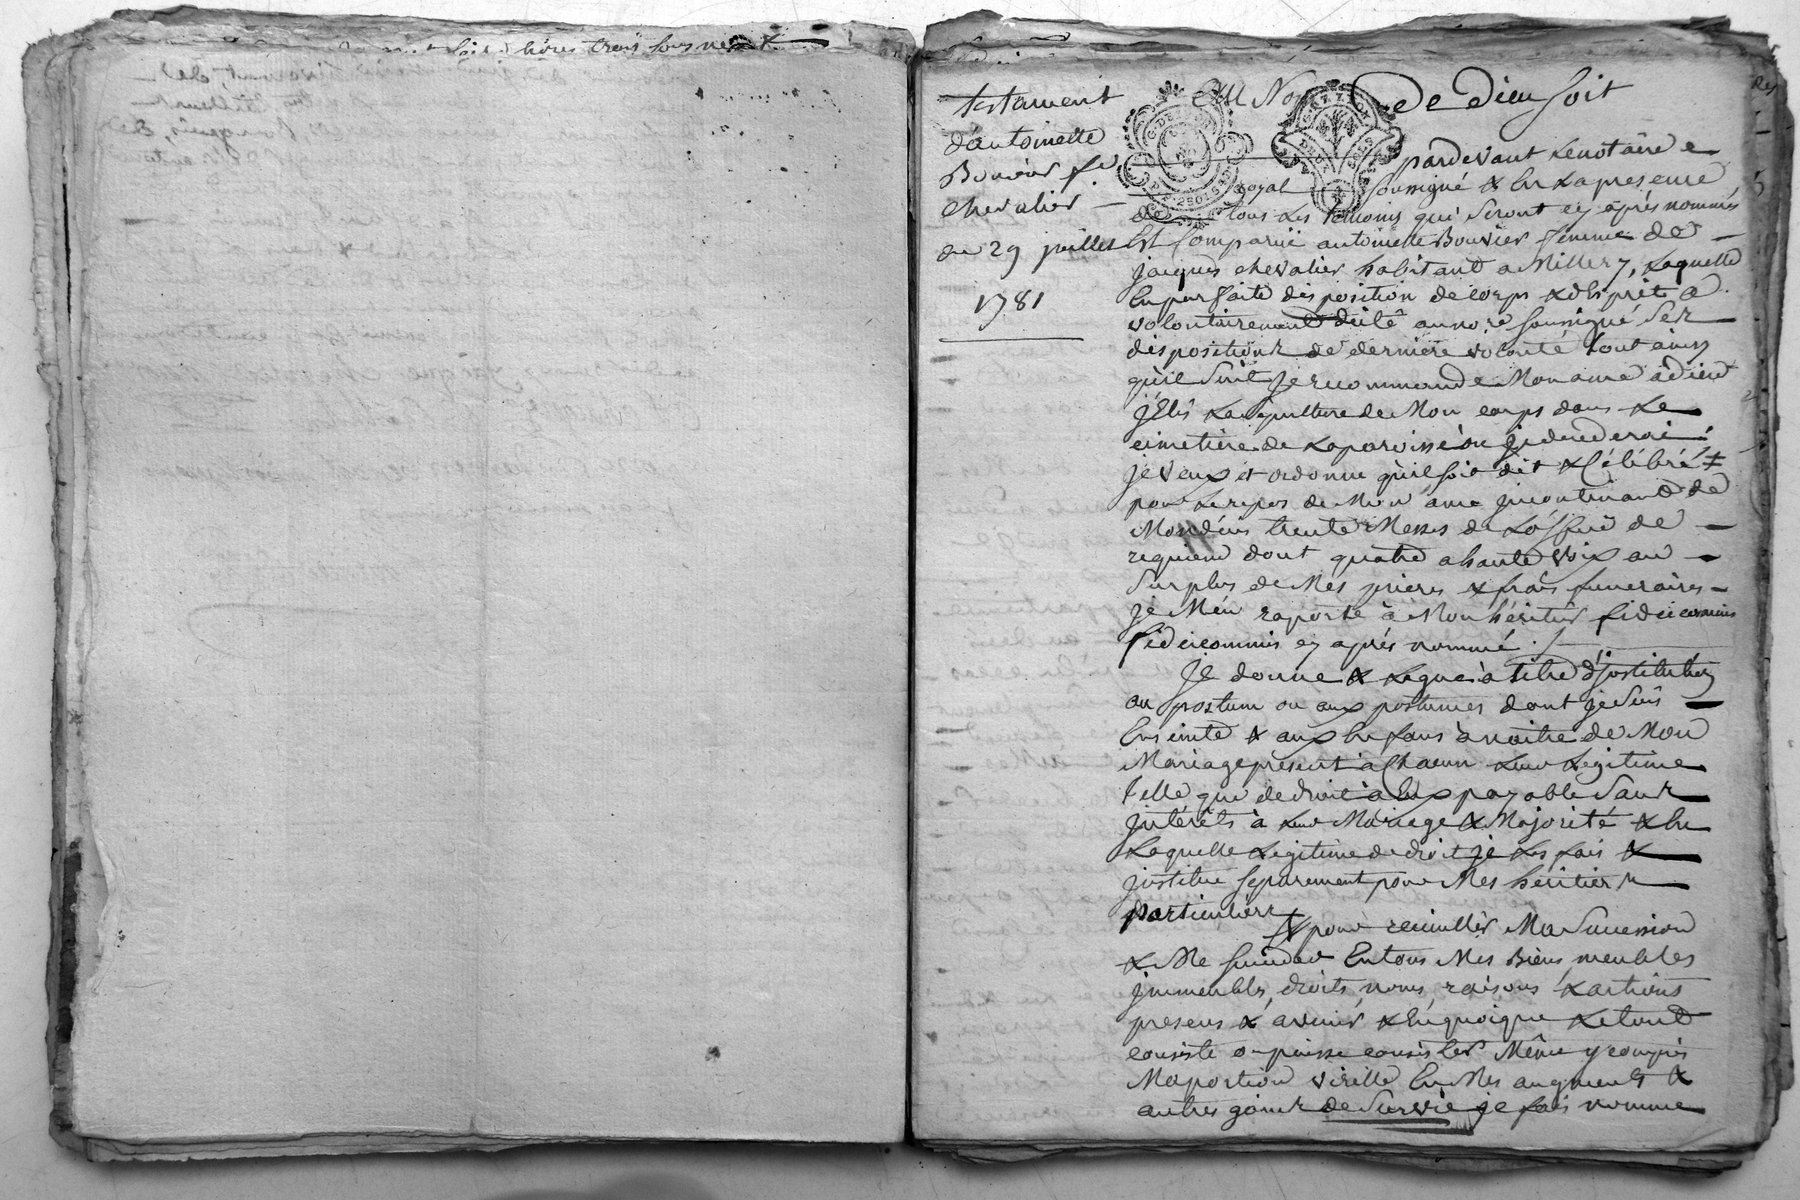 testament
d'antoinette
Bouvier fe
chevalier
du 29 juillet
1781
Au Nom De Dieu soit
G. DE LYON
DEUX SOLS
pardevant Le notaire
royal soussigné & En La presence
de tous Les temoins qui seront cy après nommés
Est Comparüe antoinette Bouvier femme de
jacques chevalier habitant a Millery, Laquelle
En parfaite disposition de corps & d'Esprit a
volontairement dicté au no.re soussigné ses
dispositions de derniere volonté tout ainsy
qu'il suit Je recommande Mon ame à dieu
j'Elis La sepulture de Mon corps dans Le
cimetière de La paroisse ou je decederai
je veux et ordonne qu'il soit dit & Célébré
pour Le repos de Mon ame incontinand
Mon décés trente Messes de L'office de
requiem dont quatre a haute voix au
surplus de Mes prieres & frais funeraires
je M'en raporte à Mon héritier fideicommis
fideicommis cy après nommé
Je donne & Legue à titre d'Institution
au postum ou aux postumes dont je suis
Enceinte & aux Enfans à naitre de Mon
Mariage présent à Chacun Leur Legitime
telle que de droit à Eux payable sans
intérêts à Leur Mariage & Majorité & En
Laquelle Legitime de droit je Les fais &
institue separement pour Mes héritiers
particuliers
& pour recueillir Ma succession
& Me succeder En tous Mes Biens meubles
immeubles, droits, noms, raisons & actions
presens & avenir & En quoique Le tout
consiste ou puisse consister Même y compris
Ma portion virille En Mes augments &
autres gains de Survie je fais nomme